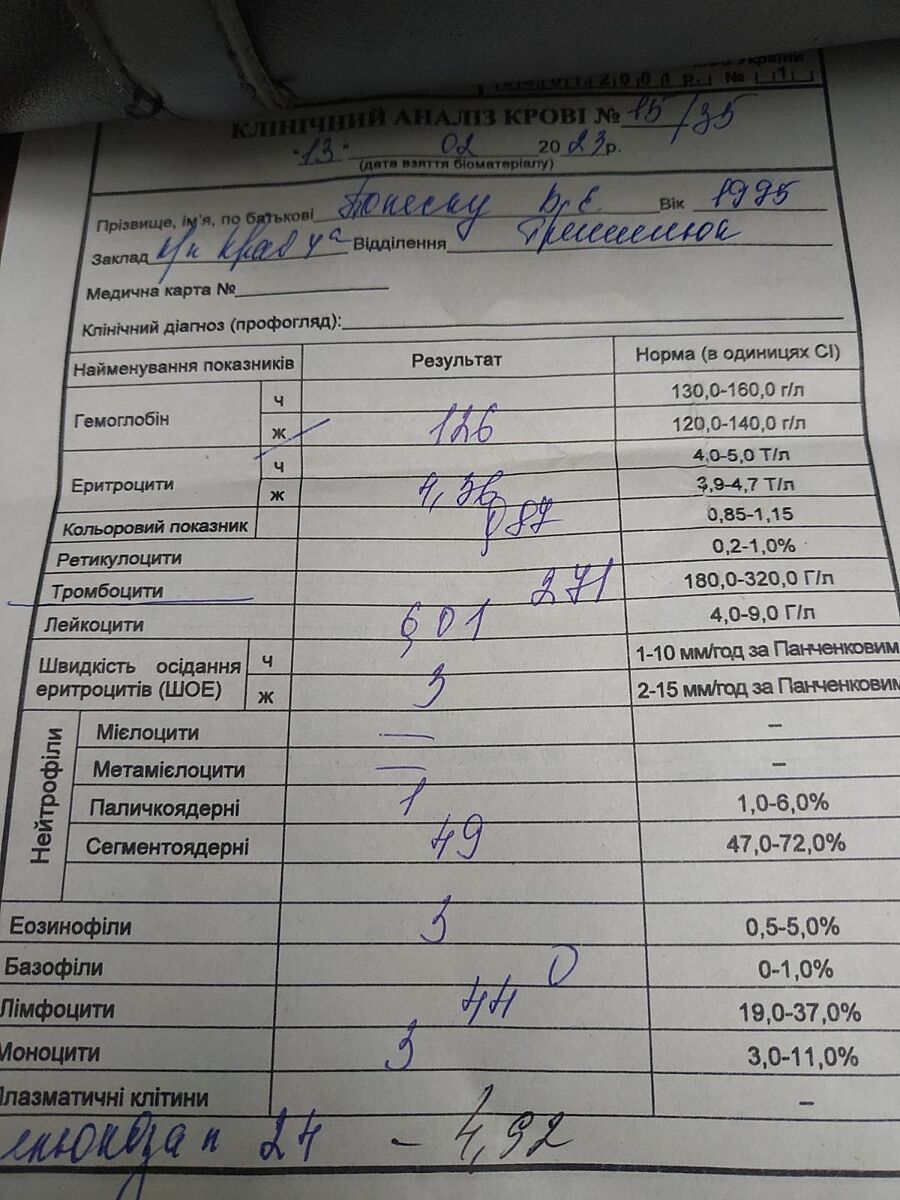 України
200 р. № 1
КЛІНІЧНИЙ АНАЛІЗ КРОВІ № 15/35
"13" 02 2023р.
(дата взяття біоматеріалу)
Прізвище, ім'я, по батькові Попеску Вік 1995
Заклад Відділення
Медична карта №
Клінічний діагноз (профогляд):
Найменування показників Результат Норма (в одиницях СІ)
Гемоглобін ч 130,0-160,0 г/л
ж 126 120,0-140,0 г/л
Еритроцити ч 4,0-5,0 Т/л
ж 4,36 3,9-4,7 Т/л
Кольоровий показник 0,87 0,85-1,15
Ретикулоцити 0,2-1,0%
Тромбоцити 271 180,0-320,0 Г/л
Лейкоцити 6,01 4,0-9,0 Г/л
Швидкість осідання еритроцитів (ШОЕ) ч 1-10 мм/год за Панченковим
ж 3 2-15 мм/год за Панченковим
Нейтрофіли
Мієлоцити — –
Метамієлоцити — –
Паличкоядерні 1 1,0-6,0%
Сегментоядерні 49 47,0-72,0%
Еозинофіли 3 0,5-5,0%
Базофіли 0 0-1,0%
Лімфоцити 44 19,0-37,0%
Моноцити 3 3,0-11,0%
Плазматичні клітини –
24 – 4,92